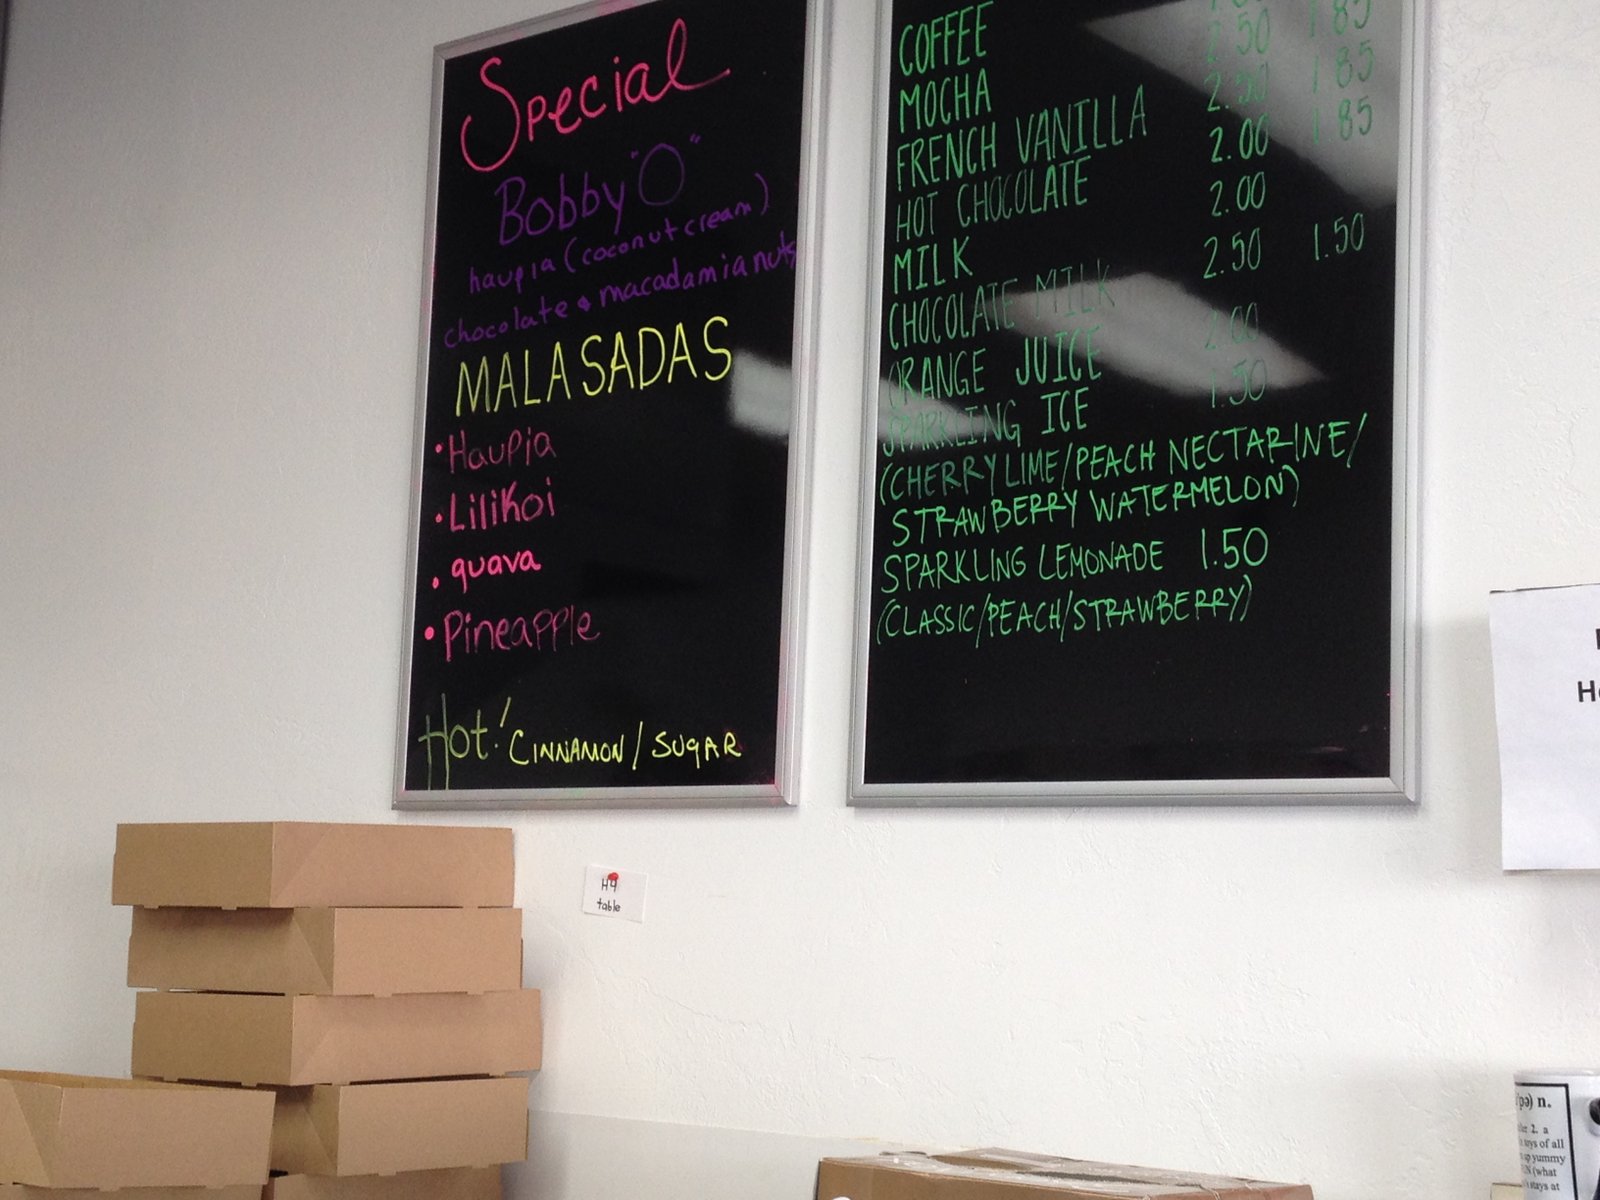 Special
Bobby "O"
haupia (coconut cream)
chocolate & macadamia nuts
MALASADAS
• Haupia
• Lilikoi
• guava
• Pineapple
Hot! CINNAMON / SUGAR
COFFEE
MOCHA 2.50 1.85
FRENCH VANILLA 2.50 1.85
HOT CHOCOLATE 2.00 1.85
MILK 2.00
CHOCOLATE MILK 2.50 1.50
ORANGE JUICE 2.00
SPARKLING ICE 1.50
(CHERRY LIME/PEACH NECTARINE/
STRAWBERRY WATERMELON)
SPARKLING LEMONADE 1.50
(CLASSIC/PEACH/STRAWBERRY)
H9
table
n.
2. a
of all
yummy
(what
stays at